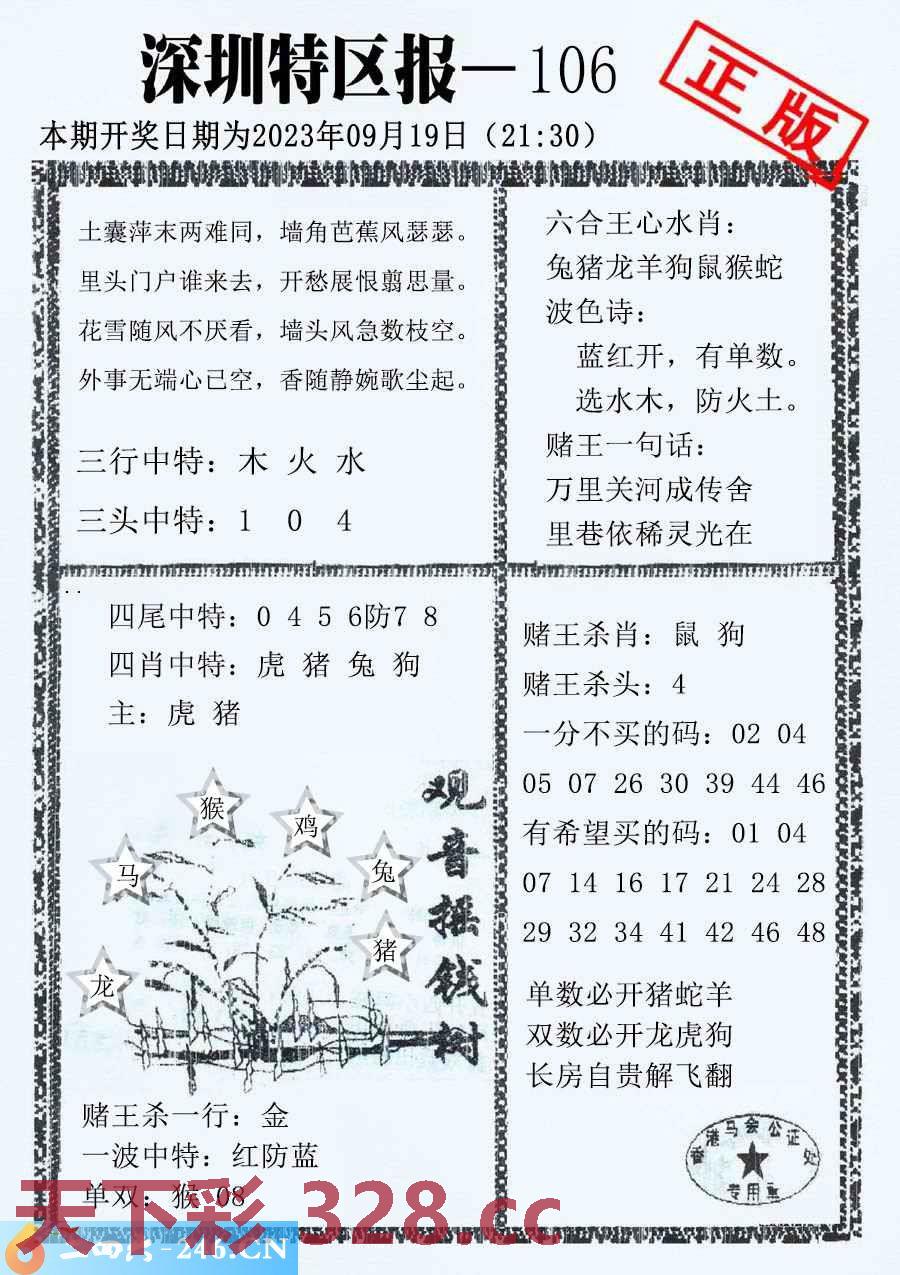 深圳特区报—106
正版
本期开奖日期为2023年09月19日（21:30）
土囊萍末两难同，墙角芭蕉风瑟瑟。
里头门户谁来去，开愁展恨翦思量。
花雪随风不厌看，墙头风急数枝空。
外事无端心已空，香随静婉歌尘起。
三行中特：木 火 水
三头中特：1 0 4
六合王心水肖：
兔猪龙羊狗鼠猴蛇
波色诗：
蓝红开，有单数。
选水木，防火土。
赌王一句话：
万里关河成传舍
里巷依稀灵光在
四尾中特：0 4 5 6防7 8
四肖中特：虎 猪 兔 狗
主：虎 猪
猴
鸡
马
兔
猪
龙
观音摇钱树
赌王杀一行：金
一波中特：红防蓝
单双：猴 08
赌王杀肖：鼠 狗
赌王杀头：4
一分不买的码：02 04
05 07 26 30 39 44 46
有希望买的码：01 04
07 14 16 17 21 24 28
29 32 34 41 42 46 48
单数必开猪蛇羊
双数必开龙虎狗
长房自贵解飞翻
香港马会公证处
专用章
天下彩 328.cc
-246.CN